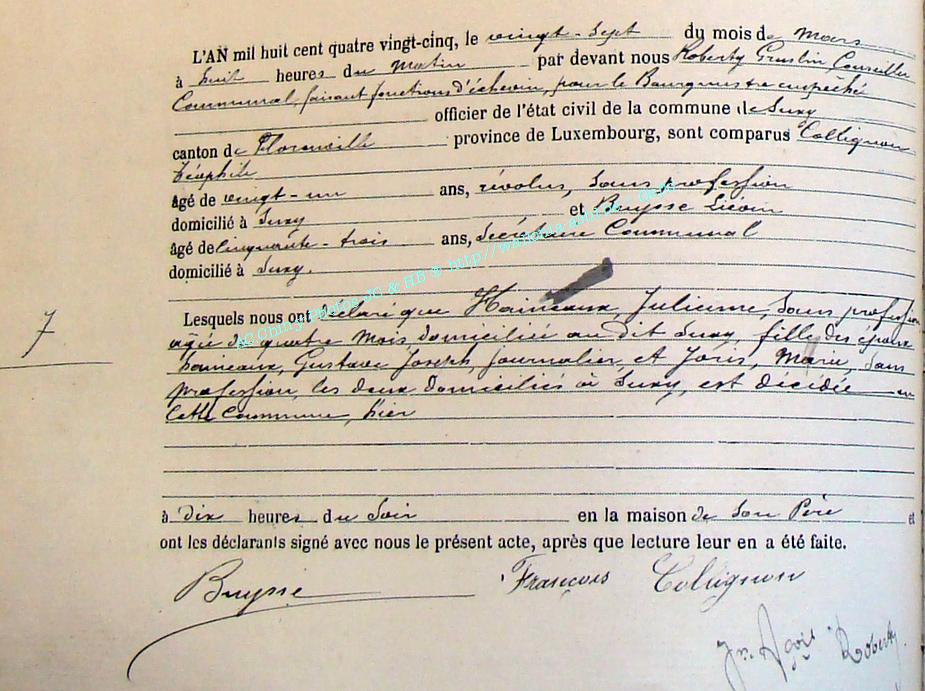 L'AN mil huit cent quatre vingt-cinq, le vingt-sept du mois de Mars
à huit heures du Matin par devant nous Roberty Conseiller
Communal, faisant fonctions d'échevin, pour le Bourgmestre empêché
officier de l'état civil de la commune de Suxy
canton de Florenville province de Luxembourg, sont comparus Collignon
Théophile
âgé de vingt-un ans, révolus, Sans profession
domicilié à Suxy et Buysse Liévin
âgé de cinquante-trois ans, Secrétaire Communal
domicilié à Suxy.
Lesquels nous ont déclaré que Hainneaux, Julienne, Sans profession
agée de quatre Mois domiciliée au dit Suxy, fille des époux
hainneaux, Gustave Joseph, Journalier, et Joris, Marie, Sans
profession, les deux domiciliés à Suxy, est décédée en
Cette Commune, hier
7
à dix heures du Soir en la maison de Son Père et
ont les déclarants signé avec nous le présent acte, après que lecture leur en a été faite.
Buysse François Collignon
Roberty